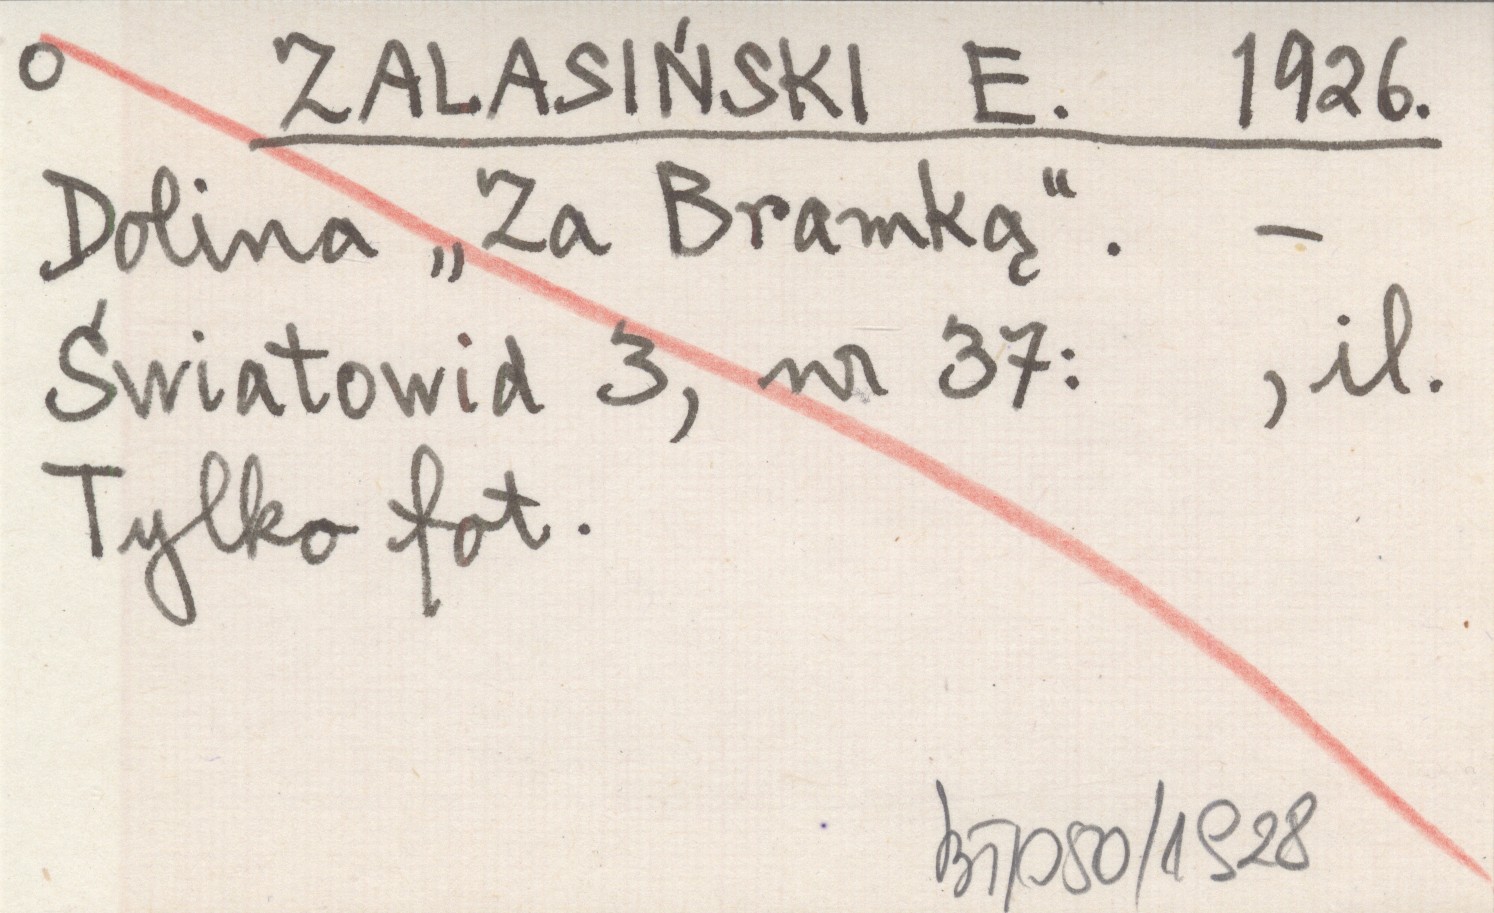 o ZALASIŃSKI E. 1926.
Dolina „Za Bramką“. –
Światowid 3, nr 37: , il.
Tylko fot.
/1928